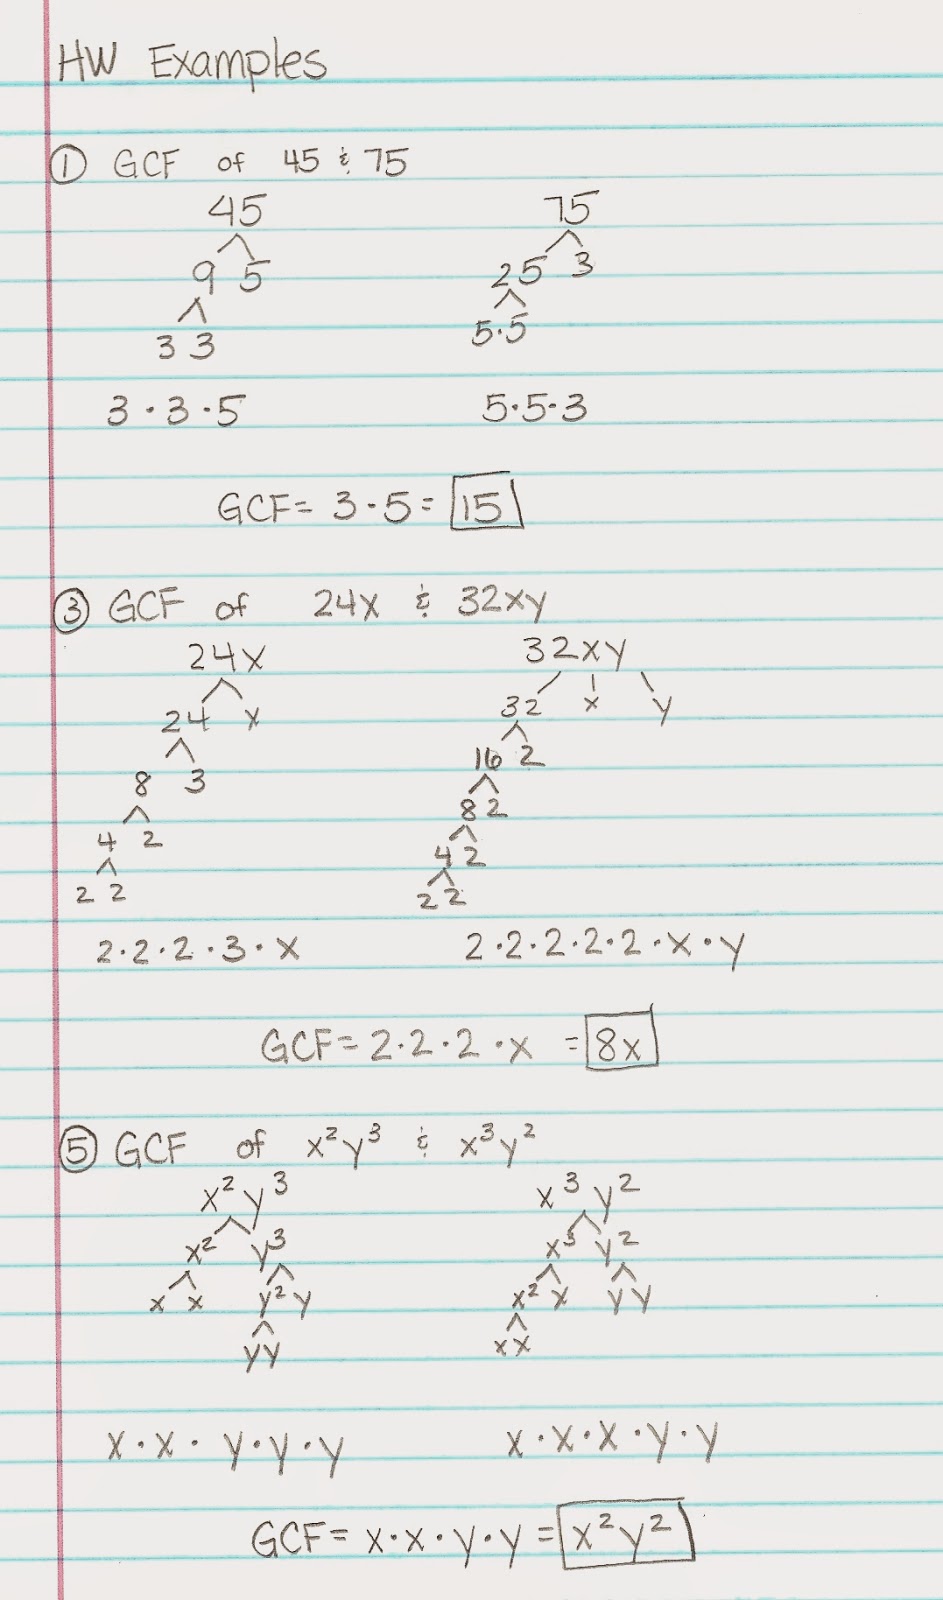 HW Examples
① GCF of 45 & 75
45 75
9 5 25 3
3 3 5·5
3 · 3 · 5 5·5·3
GCF = 3 · 5 = 15
③ GCF of 24x & 32xy
24x 32xy
24 x 32 x y
8 3 16 2
4 2 8 2
2 2 4 2
2 2
2·2·2·3·x 2·2·2·2·2·x·y
GCF = 2·2·2·x = 8x
⑤ GCF of x²y³ & x³y²
x²y³ x³y²
x² y³ x³ y²
x x y² y x² x y y
y y x x
x·x·y·y·y x·x·x·y·y
GCF = x·x·y·y = x²y²